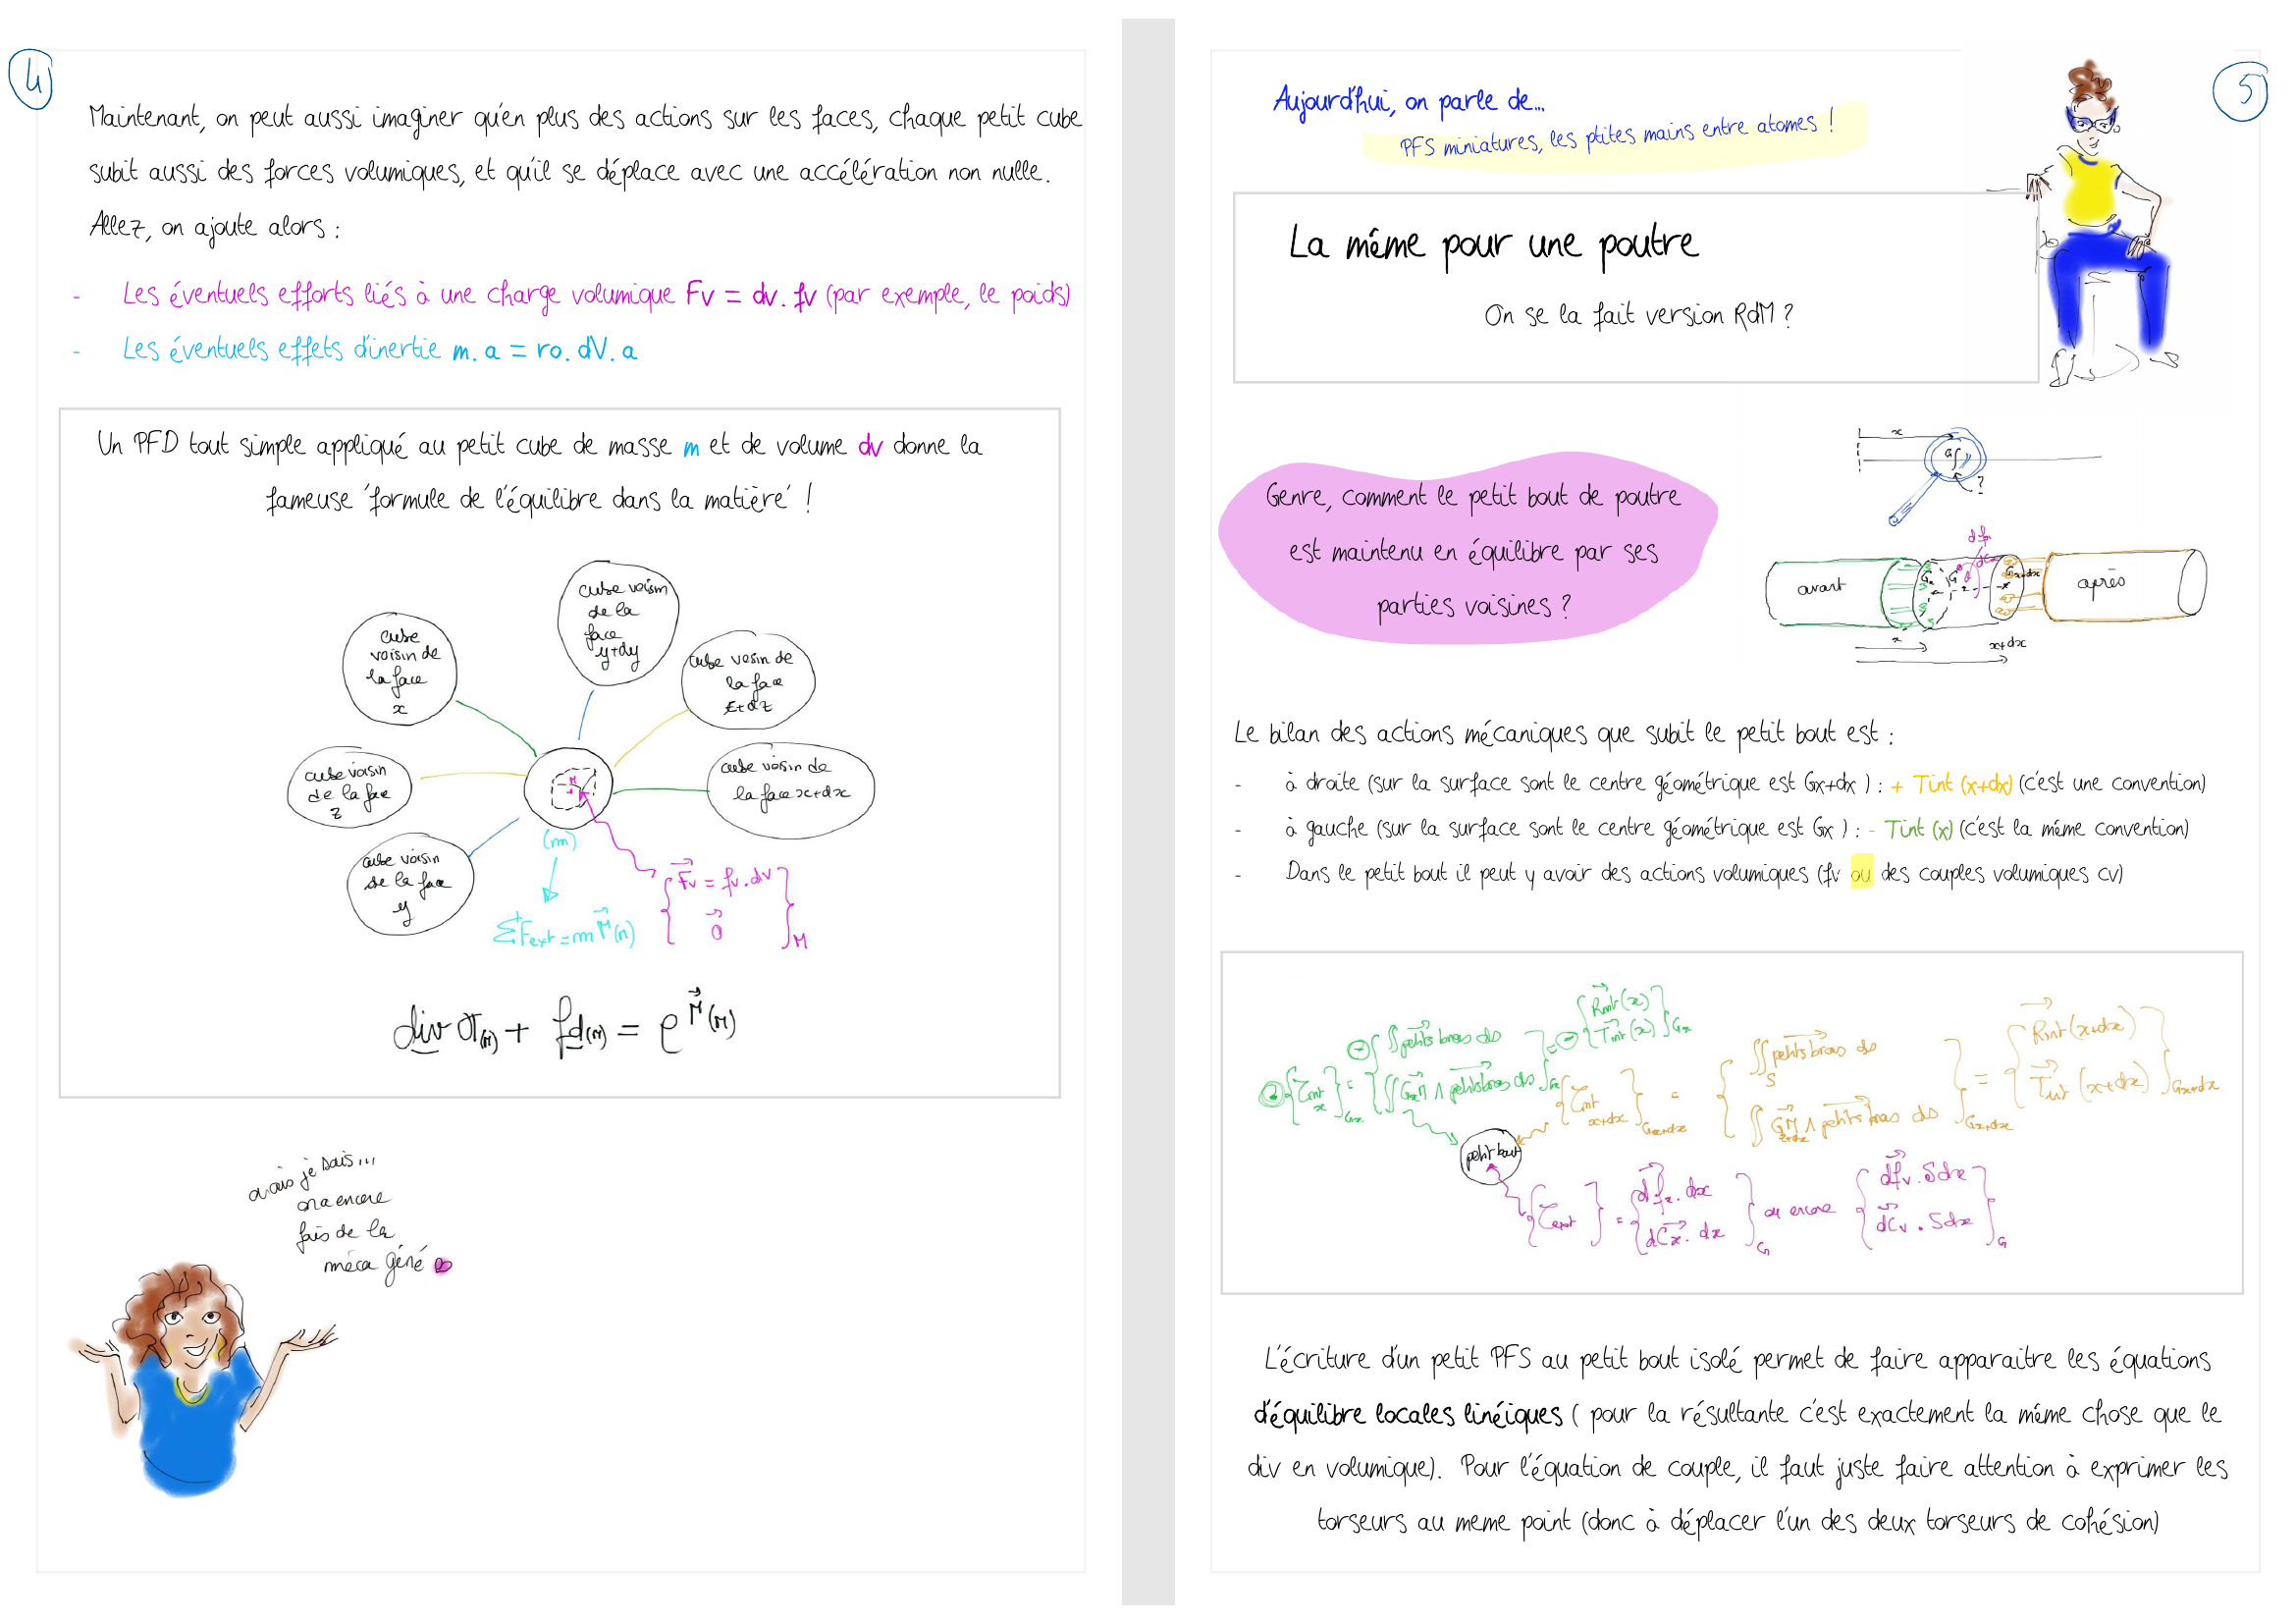 4
Maintenant, on peut aussi imaginer qu'en plus des actions sur les faces, chaque petit cube
subit aussi des forces volumiques, et qu'il se déplace avec une accélération non nulle.
Allez, on ajoute alors :
- Les éventuels efforts liés à une charge volumique Fv = dv. fv (par exemple, le poids)
- Les éventuels effets d'inertie m. a = ro. dV. a
Un PFD tout simple appliqué au petit cube de masse m et de volume dv donne la
fameuse 'formule de l'équilibre dans la matière' !
cube voisin
de la
face
y+dy
cube
voisin de
la face
x
cube voisin de
la face
z+dz
cube voisin
de la face
z
cube voisin de
la face x+dx
cube voisin
de la face
y
M
(m)
ΣFext = m Γ(M)
Fv = fv.dv
0
M
div σ(M) + fd(M) = ρ Γ(M)
ouais je sais...
on a encore
fais de la
méca géné
5
Aujourd'hui, on parle de...
PFS miniatures, les ptites mains entre atomes !
La même pour une poutre
On se la fait version RdM ?
x
?
Genre, comment le petit bout de poutre
est maintenu en équilibre par ses
parties voisines ?
avant
Gx
G
Gx+dx
après
x
x+dx
Le bilan des actions mécaniques que subit le petit bout est :
- à droite (sur la surface sont le centre géométrique est Gx+dx ) : + Tint (x+dx) (c'est une convention)
- à gauche (sur la surface sont le centre géométrique est Gx ) : - Tint (x) (c'est la même convention)
- Dans le petit bout il peut y avoir des actions volumiques (fv ou des couples volumiques cv)
⊖{Tint x}Gx = ⊖{∬petits bras ds ∬GxM ∧ petits bras ds}Gx = ⊖{Rint(x) Tint(x)}Gx
{Tint x+dx}Gx+dx = {∬S petits bras ds ∬Gx+dxM ∧ petits bras ds}Gx+dx = {Rint(x+dx) Tint(x+dx)}Gx+dx
petit bout
{Text} = {dfx.dx dCx.dx}G ou encore {dfv.Sdx dCv.Sdx}G
L'écriture d'un petit PFS au petit bout isolé permet de faire apparaitre les équations
d'équilibre locales linéiques ( pour la résultante c'est exactement la même chose que le
div en volumique). Pour l'équation de couple, il faut juste faire attention à exprimer les
torseurs au meme point (donc à déplacer l'un des deux torseurs de cohésion)